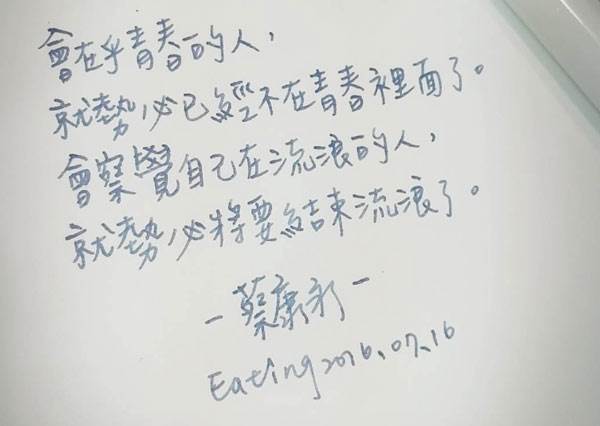 會在乎青春的人，
就勢必已經不在青春裡面了。
會察覺自己在流浪的人，
就勢必將要結束流浪了。
－蔡康永－
Eating 2016.07.16